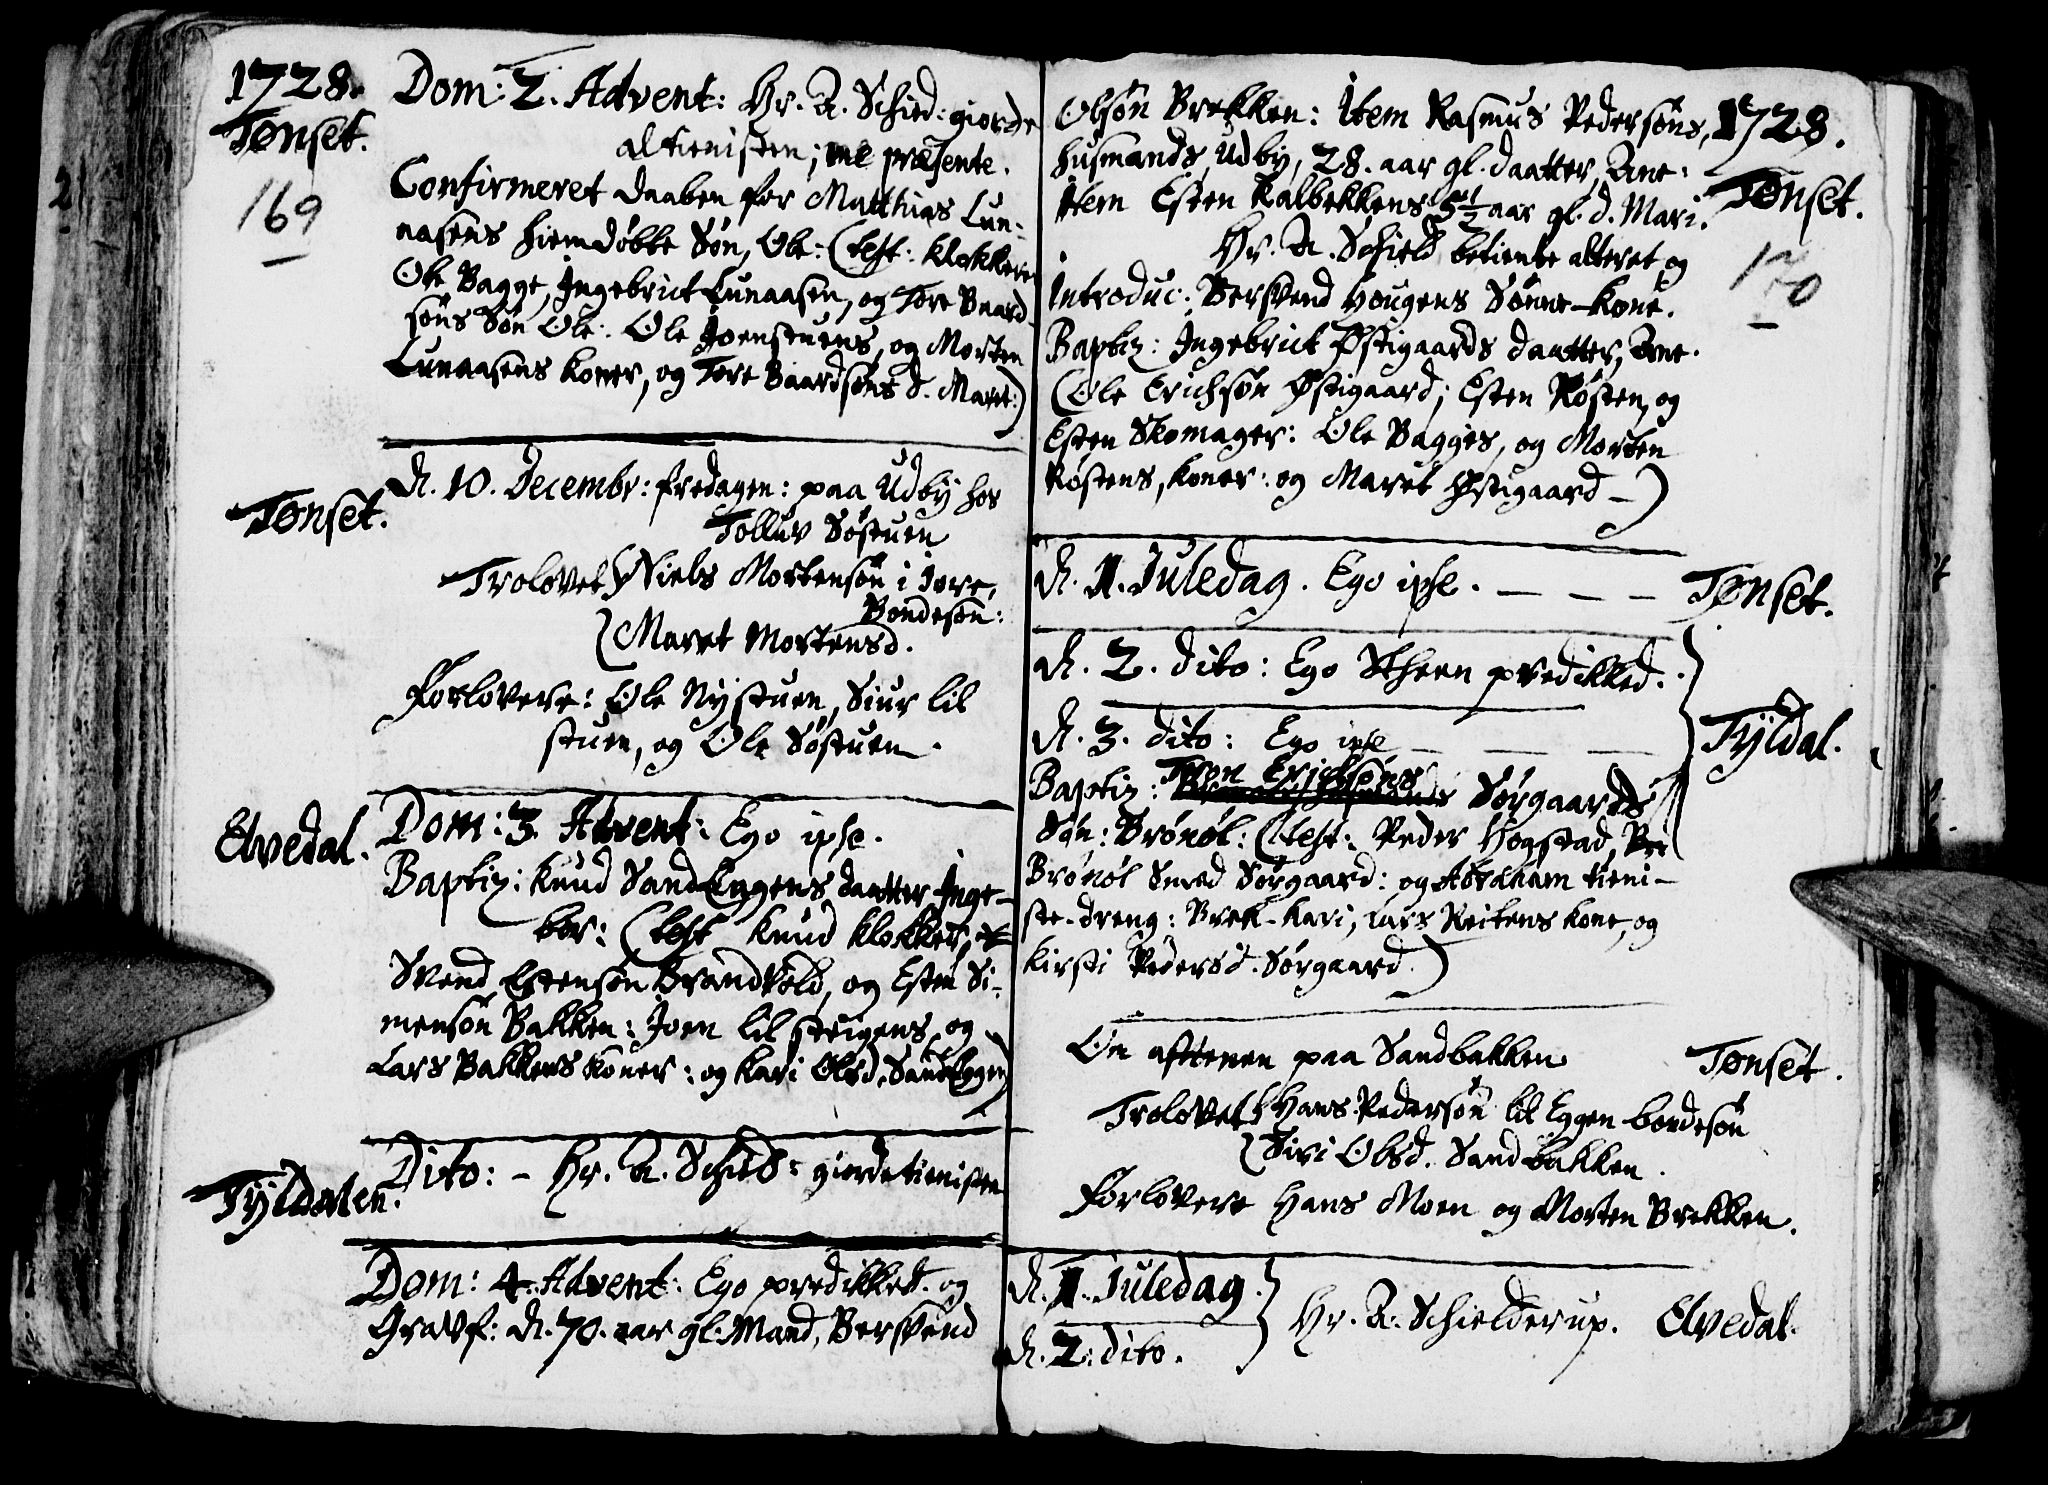 1728.
Tønset.
169
Dom: 2. Advent: Hr. A. Schield: giorde
altienisten; me præsente.
Confirmeret daaben for Matthias Lun-
naasens hiemdøbte Søn, Ole: (test: klokkeren
Ole Bagge, Ingebrict Lunaasen, og Tore Baard-
søns Søn Ole: Ole Joenstuens, og Morten
Lunaasens koner, og Tore Baardsøns d. Maret:)
Tønset.
d. 10. Decembr: fredagen: paa Udby hos
Tolluv Søstuen
Trolovet { Niels Mortensøn i Jore,
Bondesøn:
{ Maret Mortensd.
Forlovere: Ole Nystuen, Siur lil
stuen, og Ole Søstuen.
Elvedal.
Dom: 3. Advent: Ego ipse.
Baptiz: Knud SandEggens daatter Inge-
bor: (test Knud klokker,
Svend Estensøn Brandvold, og Esten Si-
mensøn Bakken: Joen lil steigens, og
Lars Bakkens koner: og Kari Olsd. SandEggen)
Tyldalen.
Dito: - Hr. A. Schield: giorde tienisten
Dom: 4. Advent: Ego predikket. og
Gravf: d. 70. aar gl. Mand, Bersvend
1728.
Tønset.
170
Olsøn Brekken: Item Rasmus Pedersøns,
husmands, Udby, 28. aar gl. daatter, Ane:
Item Esten Kalbekkens 5½ aar gl. d. Mari.
Hr. A. Schield betiente alteret og
Introduc: Bersvend Hougens Sønne-kone.
Baptiz: Ingebrict Østigaards daatter, Ane.
(Ole Erichsøn Østigaard; Esten Røsten, og
Esten Skomager: Ole Bagges, og Morten
Røstens, koner: og Maret Østigaard -)
d. 1. Juledag. Ego ipse. - - -
Tønset.
d. 2. dito: Ego Skheen predikked.
d. 3. dito: Ego ipse - - -
Tyldal.
Tron Erichsøns
Baptiz: Sørgaards
Søn: Brønøl: (test: Peder Hogstad,
Brønøl Smed Sørgaard: og Abraham tieni-
ste-dreng: Brek-Kari, Lars Reitens kone, og
Kirsti Pedersd. Sørgaard.)
On afttenen paa Sandbakken
Tønset.
Trolovet { Hans Pedersøn lil Eggen bondesøn
{ Siri Olsd. Sandbakken.
Forlovere Hans Moen og Morten Brekken.
d. 1. Juledag.
d. 2. dito.
} Hr. A. Schielderup. Elvedal.